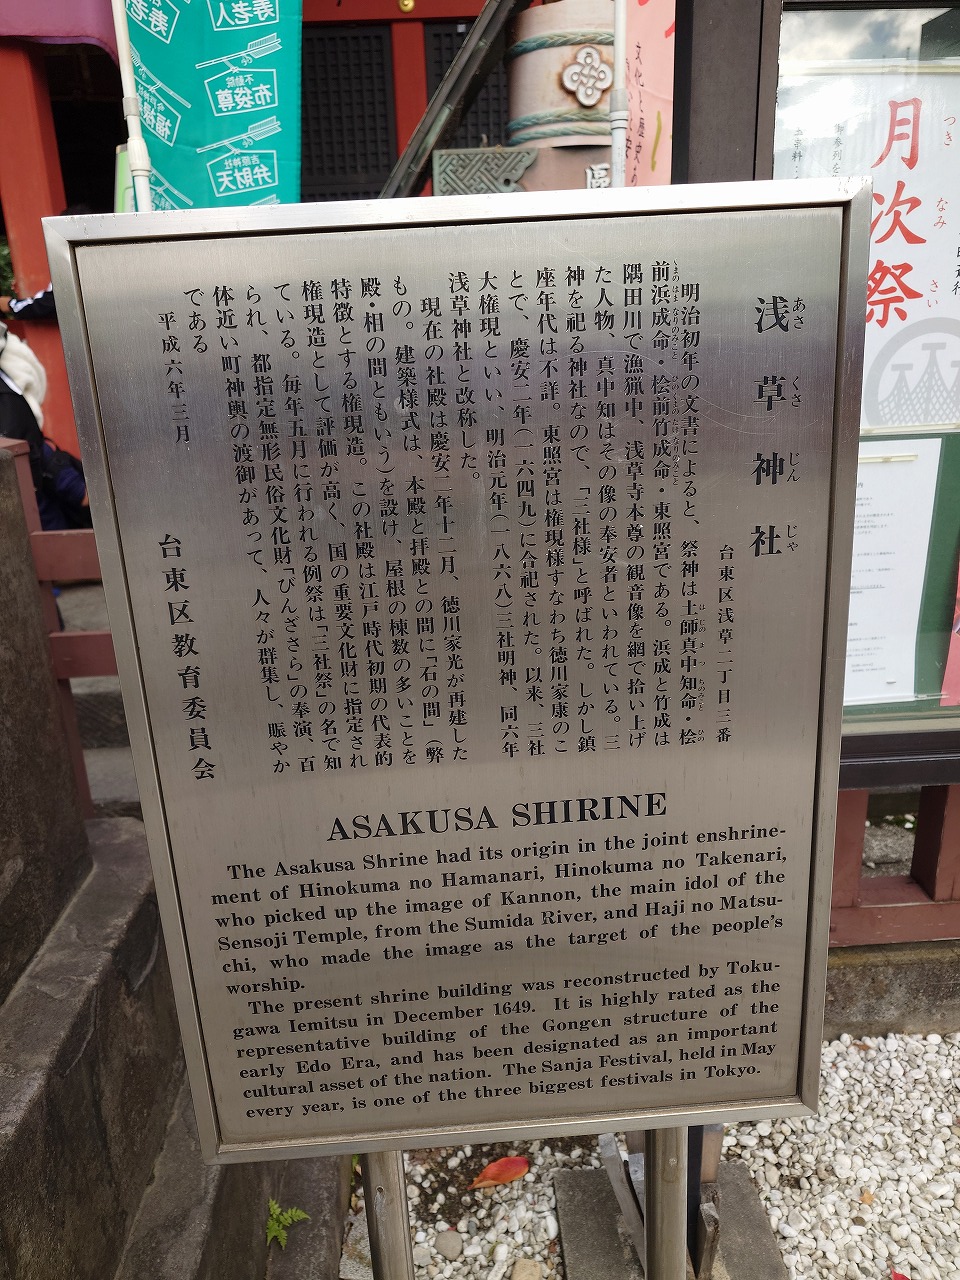 寿老人
布袋尊
弁財天
吉原神社
福禄
文化と歴史
月次祭
つき
なみ
さい
浅草神社
あさくさじんじゃ
台東区浅草二丁目三番
明治初年の文書によると、祭神は土師真中知命・桧
前浜成命・桧前竹成命・東照宮である。浜成と竹成は
隅田川で漁猟中、浅草寺本尊の観音像を網で拾い上げ
た人物、真中知はその像の奉安者といわれている。三
神を祀る神社なので、「三社様」と呼ばれた。しかし鎮
座年代は不詳。東照宮は権現様すなわち徳川家康のこ
とで、慶安二年(一六四九)に合祀された。以来、三社
大権現といい、明治元年(一八六八)三社明神、同六年
浅草神社と改称した。
現在の社殿は慶安二年十二月、徳川家光が再建した
もの。建築様式は、本殿と拝殿との間に「石の間」(弊
殿・相の間ともいう)を設け、屋根の棟数の多いことを
特徴とする権現造。この社殿は江戸時代初期の代表的
権現造として評価が高く、国の重要文化財に指定され
ている。毎年五月に行われる例祭は「三社祭」の名で知
られ、都指定無形民俗文化財「びんざさら」の奉演、百
体近い町神輿の渡御があって、人々が群集し、賑やか
である
平成六年三月
台東区教育委員会
ASAKUSA SHIRINE
The Asakusa Shrine had its origin in the joint enshrine-
ment of Hinokuma no Hamanari, Hinokuma no Takenari,
who picked up the image of Kannon, the main idol of the
Sensoji Temple, from the Sumida River, and Haji no Matsu-
chi, who made the image as the target of the people's
worship.
The present shrine building was reconstructed by Toku-
gawa Iemitsu in December 1649. It is highly rated as the
representative building of the Gongen structure of the
early Edo Era, and has been designated as an important
cultural asset of the nation. The Sanja Festival, held in May
every year, is one of the three biggest festivals in Tokyo.